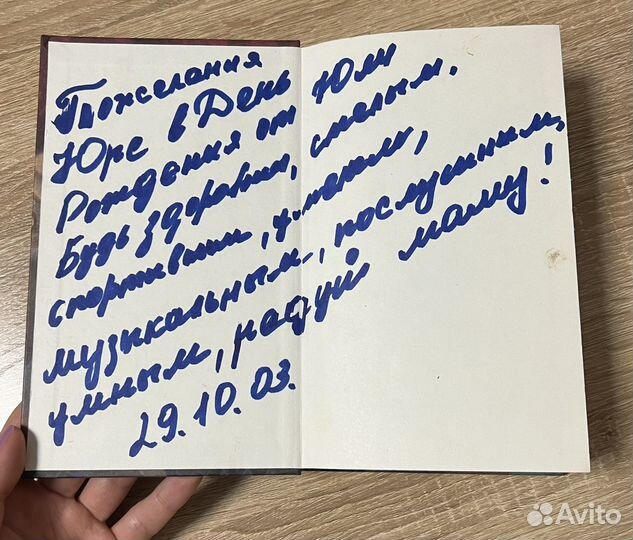 Пожелания
Юре в День
Рождения от Юли
Будь здоровым, смелым,
спортивным, умелым,
музыкальным, послушным,
умным, радуй маму!
29.10.03.
Avito